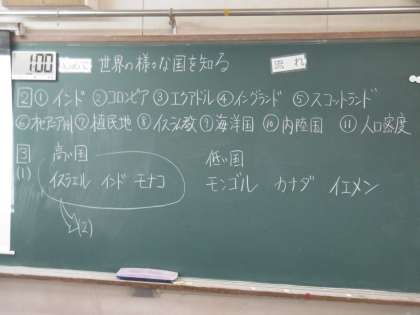 1:00
世界の様々な国を知る
流れ
2 ①インド ②コロンビア ③エクアドル ④イングランド ⑤スコットランド
⑥オセアニア州 ⑦植民地 ⑧イスラム教 ⑨海洋国 ⑩内陸国 ⑪人口密度
3 高い国 低い国
(1) イスラエル インド モナコ モンゴル カナダ イエメン
(2)